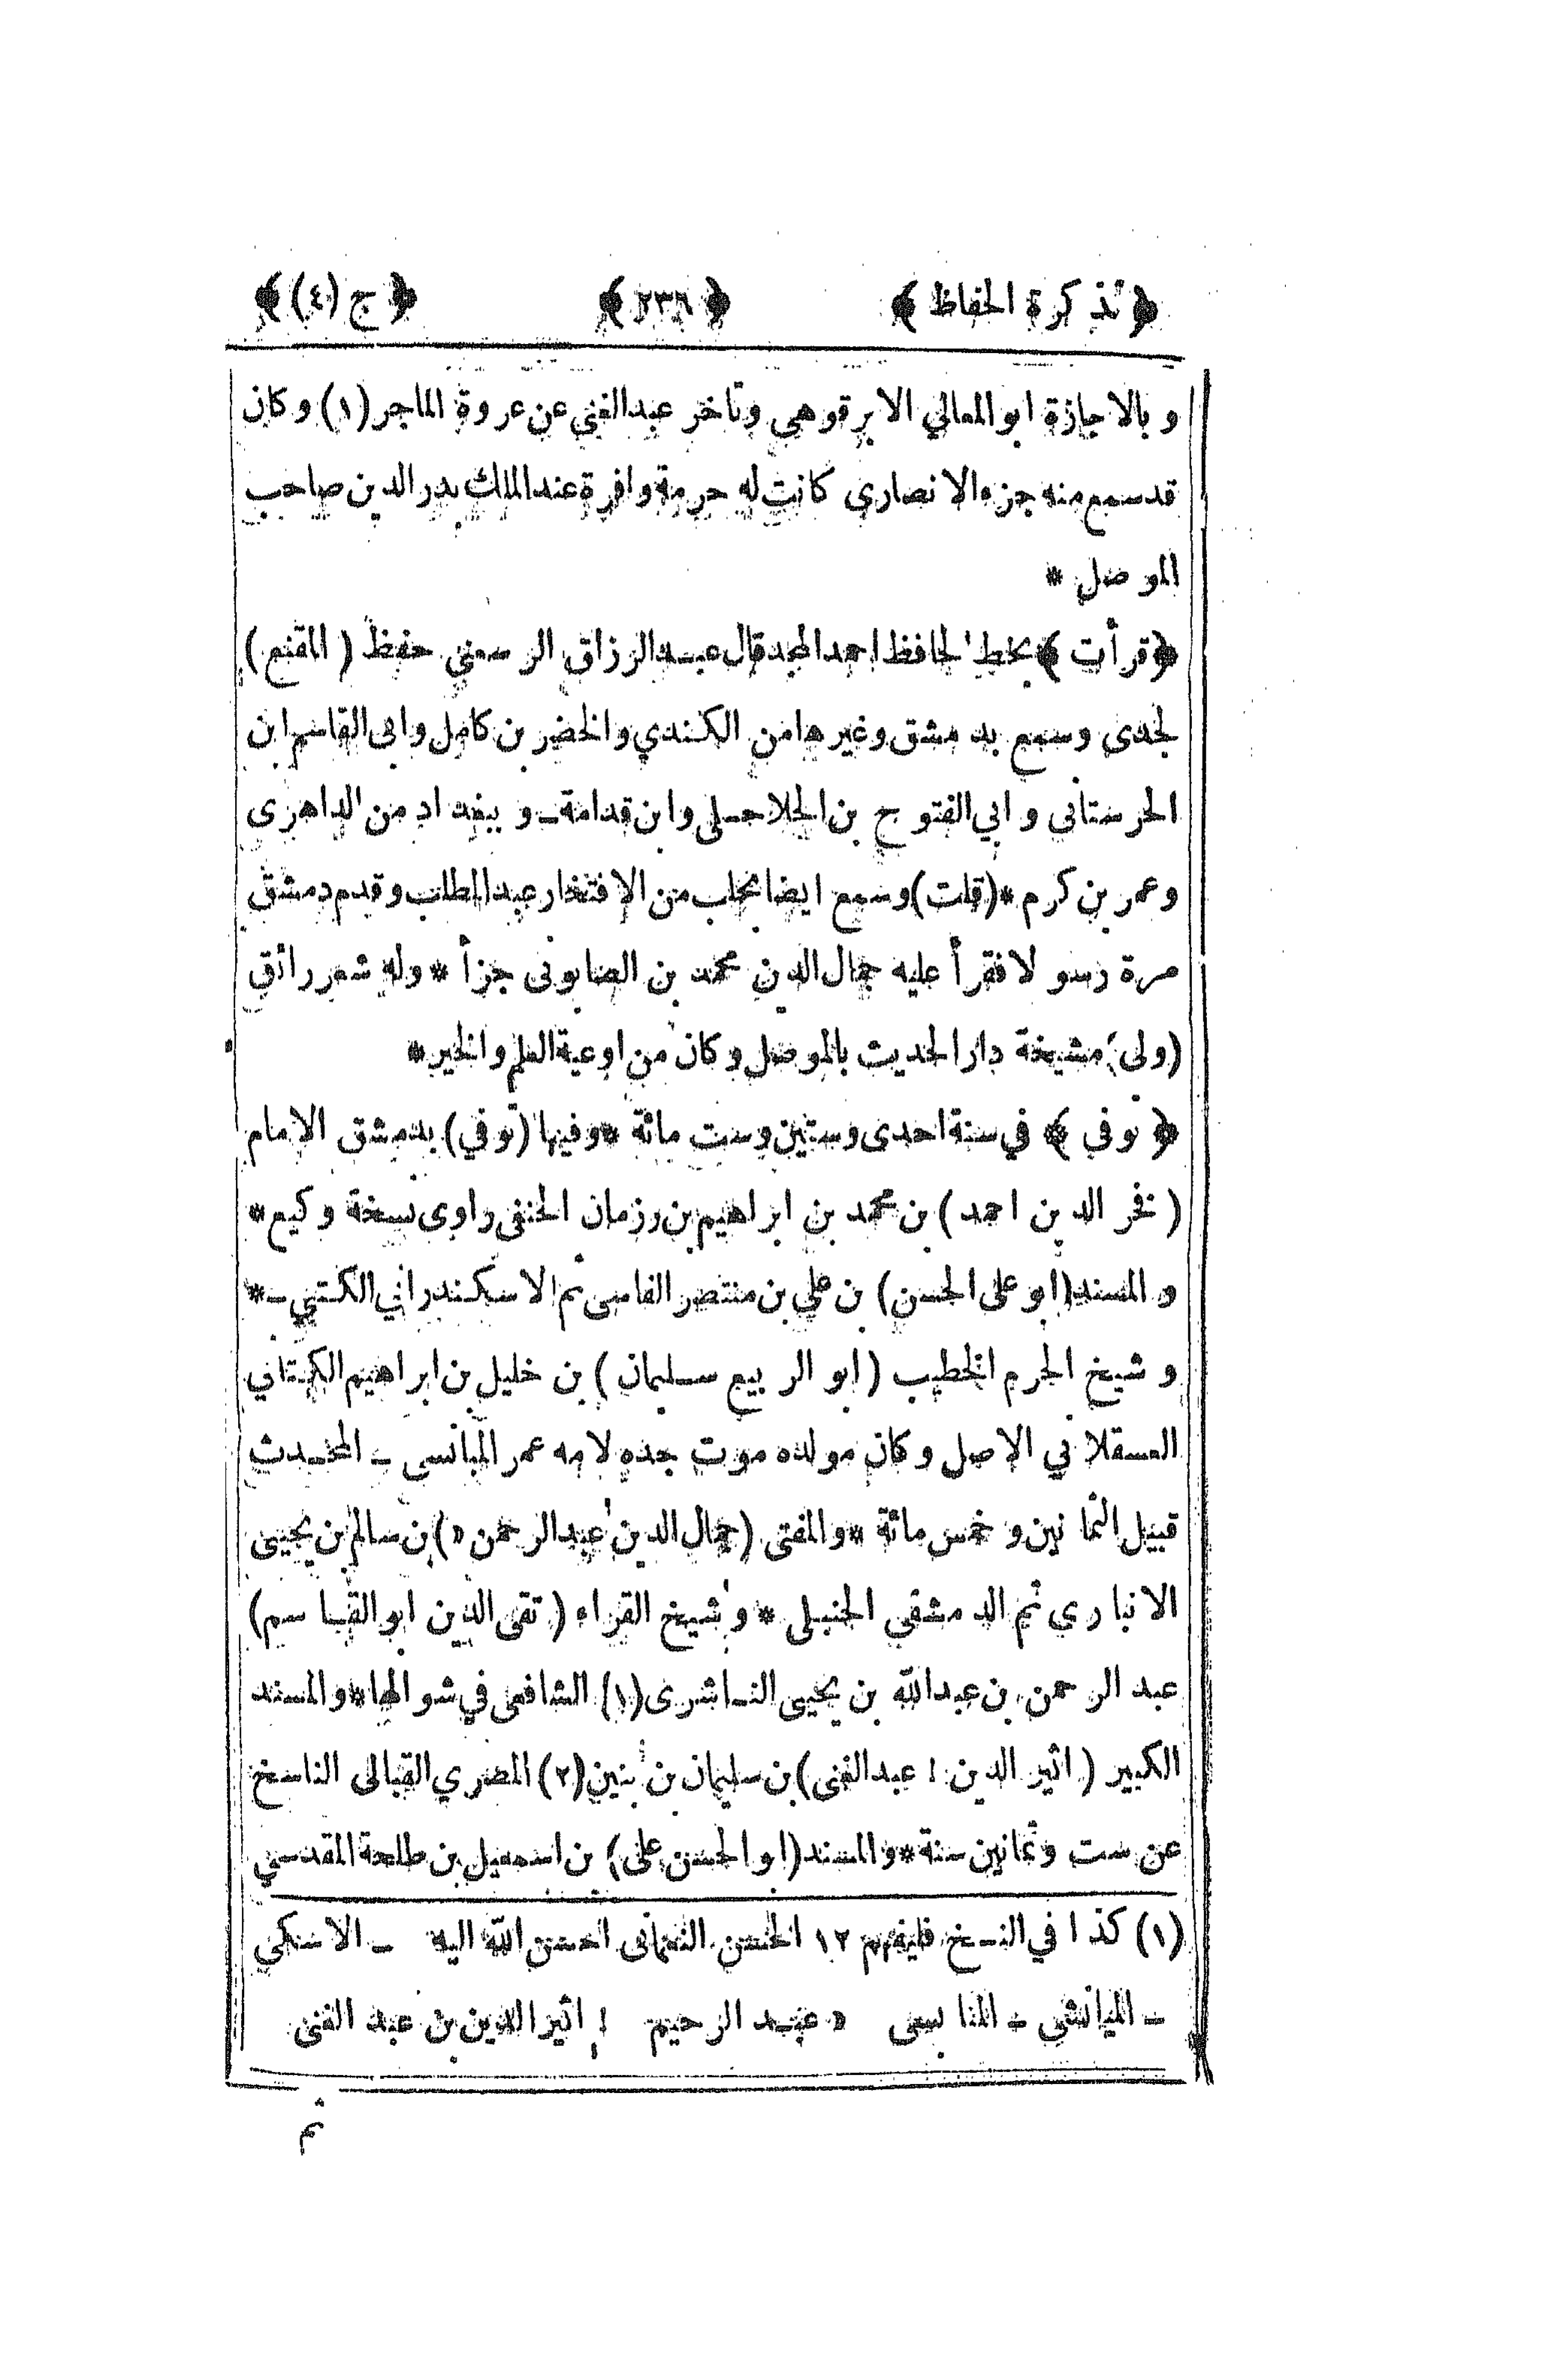 ﴿ تذكرة الحفاظ ﴾ ﴿ ٢٣٦ ﴾ ﴿ ج (٤) ﴾
و بالاجازة ابو المعالي الابرقوهي وتاخر عبد الغني عن عروة الماجر (١) وكان
قد سمع منه جزء الانصاري كانت له حرمة وافرة عند الملك بدر الدين صاحب
الموصل *
﴿ قرأت ﴾ بخط الحافظ احمد المجد قال عبد الرزاق الرسعني حفظ ( المقنع )
لجدى وسمع بدمشق وغيرها من الكندي والخضر بن كامل وابى القاسم ابن
الحرستانى و ابي الفتوح بن الجلاجلى وابن قدامة ـ و ببغداد من الداهرى
وعمر بن كرم * (قلت) وسمع ايضا بحلب من الافتخار عبد المطلب وقدم دمشق
مرة رسولا فقرأ عليه جمال الدين محمد بن الصابونى جزأ * وله شعر رائق
(ولى) مشيخة دار الحديث بالموصل وكان من اوعية العلم والخير *
﴿ توفى ﴾ في سنة احدى وستين وست مائة * وفيها (توفي) بدمشق الامام
( فخر الدين احمد ) بن محمد بن ابراهيم بن رزمان الحنفى راوى نسخة وكيع *
و المسند (ابو على الحسن) بن علي بن منتصر الفاسى ثم الاسكندراني الكتبي ـ *
و شيخ الحرم الخطيب ( ابو الربيع سليمان ) بن خليل بن ابراهيم الكتاني
العسقلاني الاصل وكان مولده موت جده لامه عمر المبانسى ـ المحدث
قبيل الثمانين و خمس مائة * والمفتى (جمال الدين عبد الرحمن «) بن سالم بن يحيى
الانباري ثم الدمشقى الحنبلى * و شيخ القراء ( تقى الدين ابو القاسم )
عبد الرحمن بن عبد الله بن يحيى الناشرى (١) الشافعى في شوالها * والمسند
الكبير ( اثير الدين ! عبد الغنى ) بن سليمان بن بنين (٢) المصري القبالى الناسخ
عن ست وثمانين سنة * والمسند (ابو الحسن على) بن اسمعيل بن طلحة المقدسي
(١) كذا في النسخ فليفهم ١٢ الحسن النعمانى احسن الله اليه ـ الاسكي
ـ الميانشى ـ المنابسى « عبد الرحيم ! اثير الدين بن عبد الغنى
ثم